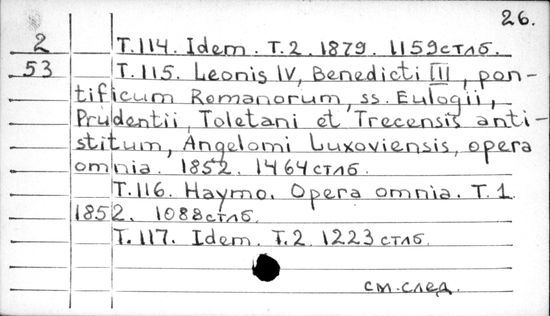 26.
2 Т.114. Idem. T.2. 1879. 1159стлб.
53 Т.115. Leonis IV, Benedicti III, pon-
tificum Romanorum, ss. Eulogii,
Prudentii, Toletani et Trecensis anti-
stitum, Angelomi Luxoviensis, opera
omnia. 1852. 1464стлб.
Т.116. Haymo. Opera omnia. T.1.
1852. 1088стлб.
Т.117. Idem. T.2. 1223стлб.
см.след.